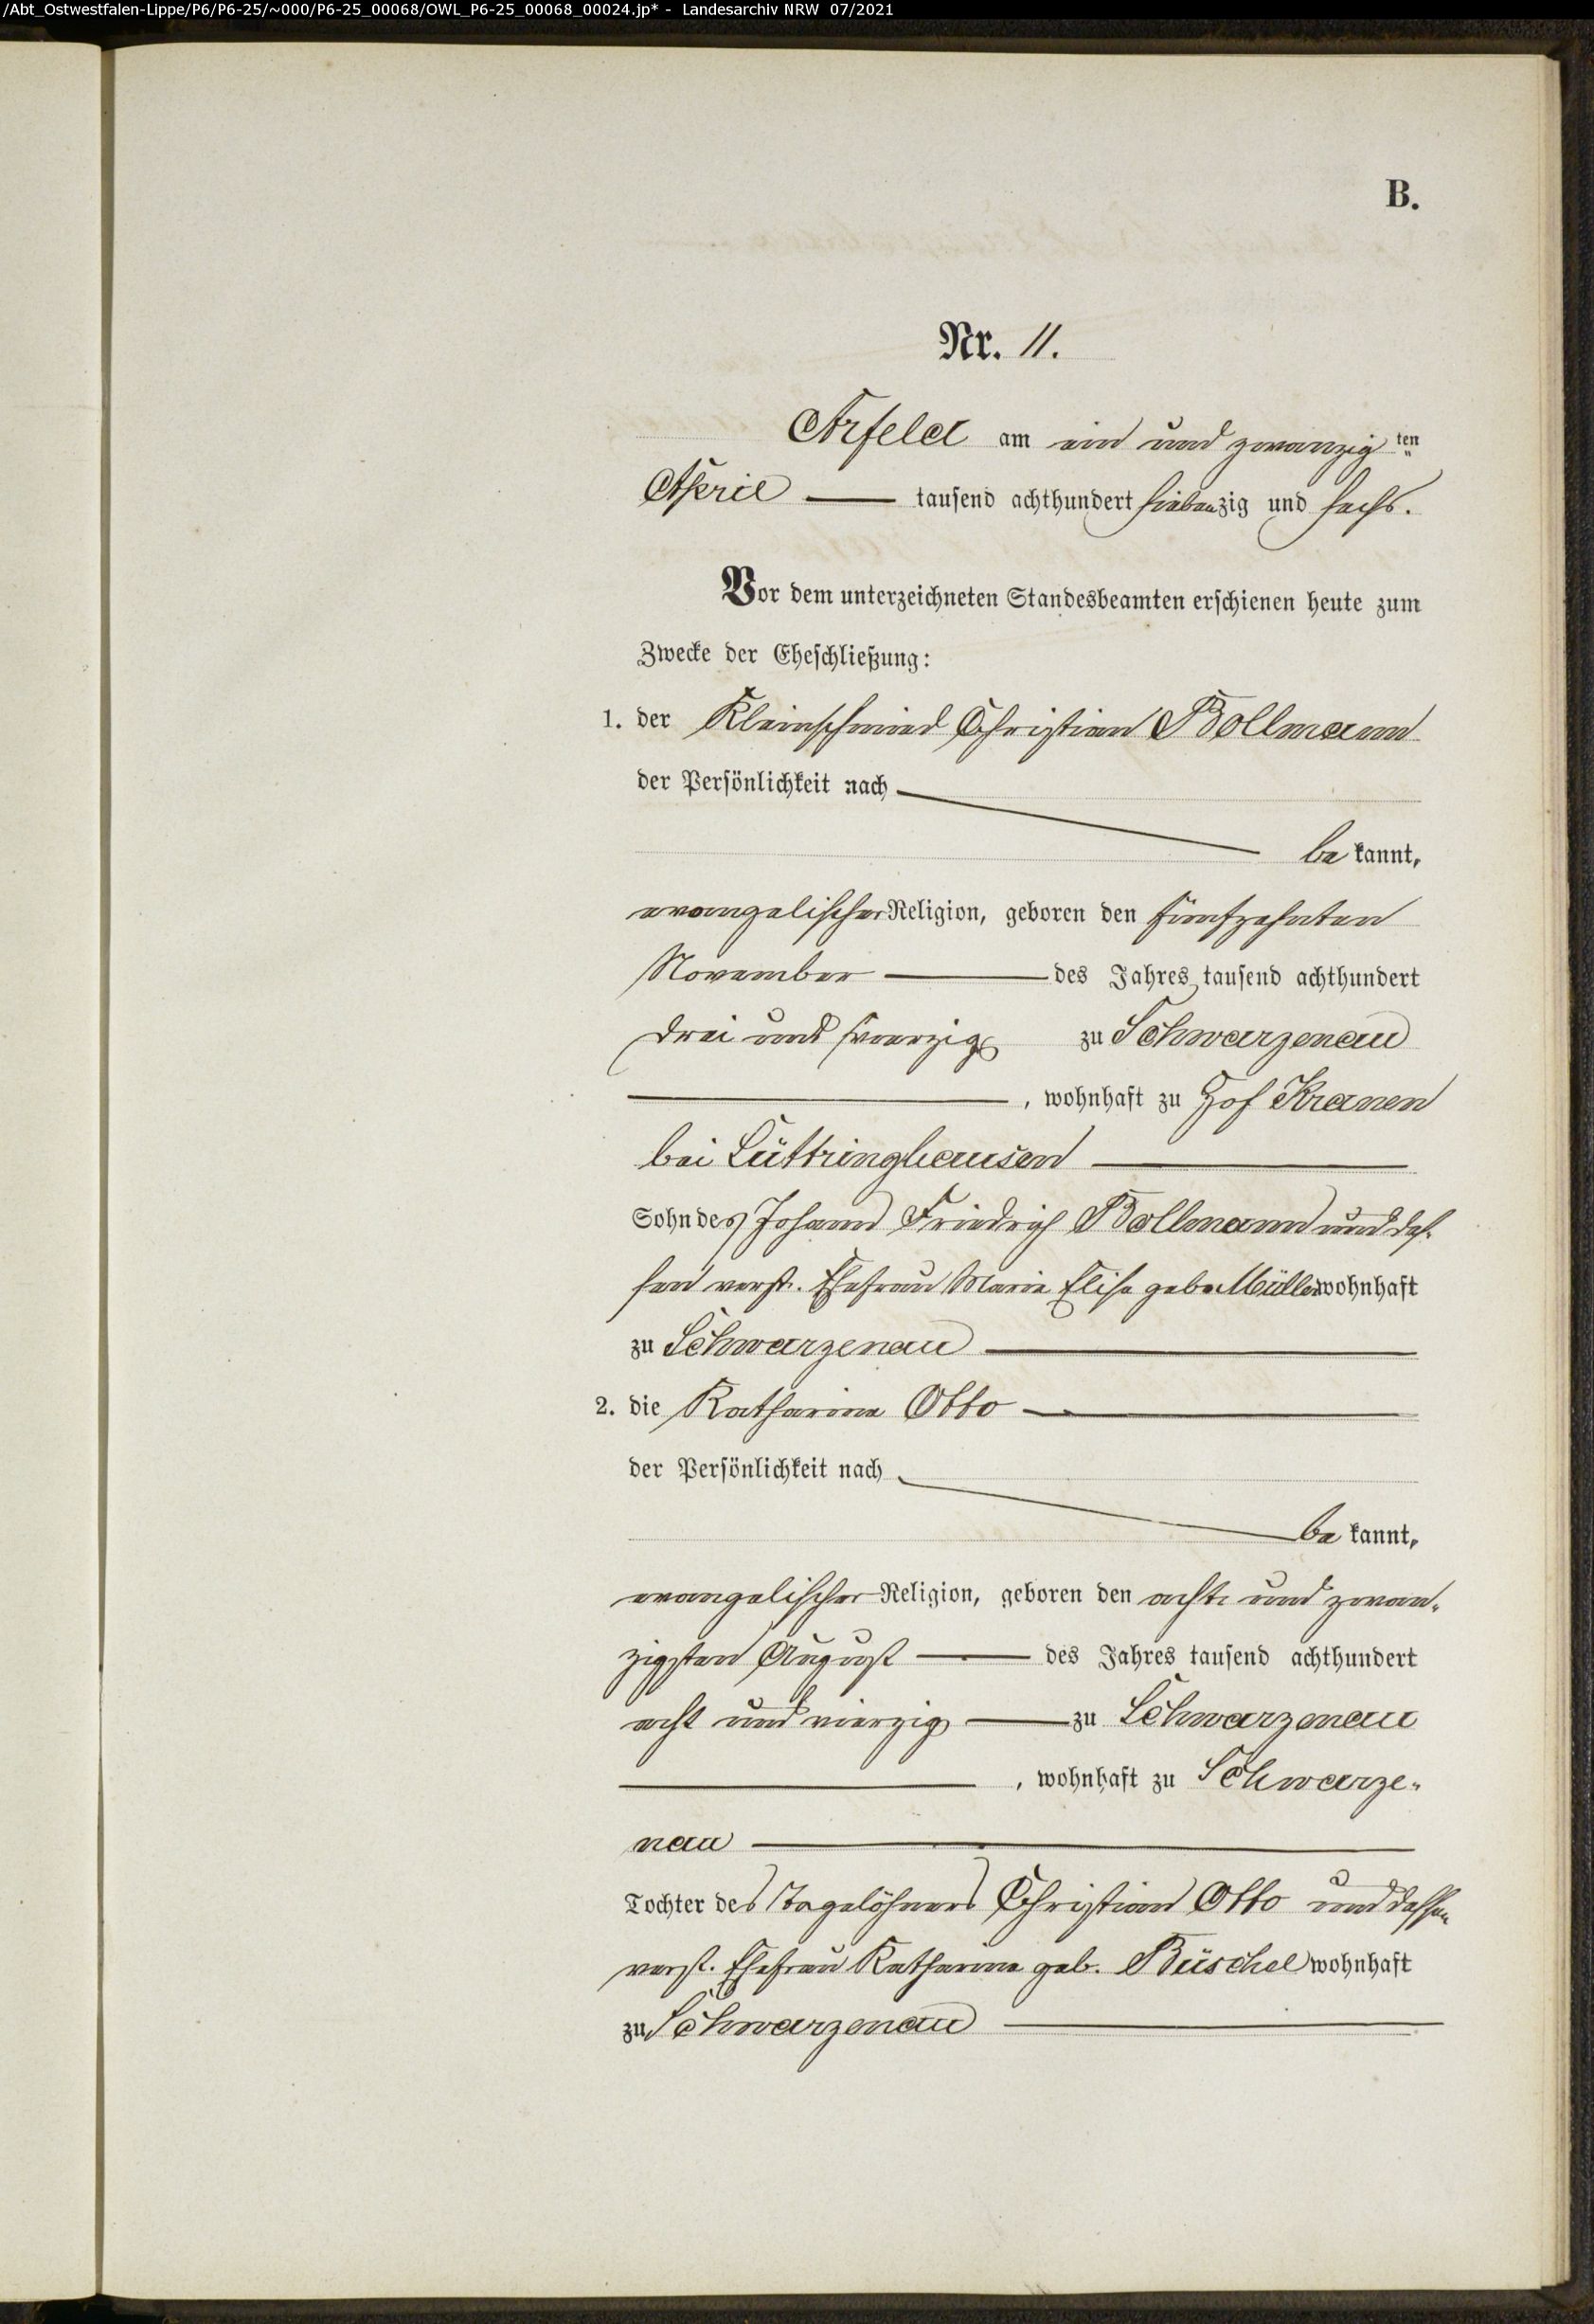 /Abt_Ostwestfalen-Lippe/P6/P6-25/~000/P6-25_00068/OWL_P6-25_00068_00024.jp* - Landesarchiv NRW 07/2021
B.
Nr. 11.
Arfeld am ein und zwanzig ten
April tausend achthundert siebenzig und sechs.
Vor dem unterzeichneten Standesbeamten erschienen heute zum
Zwecke der Eheschließung:
1. der Kleinschmied Christian Bollmann
der Persönlichkeit nach
be kannt,
evangelischer Religion, geboren den fünfzehnten
November des Jahres tausend achthundert
drei und vierzig zu Schwarzenau
, wohnhaft zu Hof Kranen
bei Lüttringhausen
Sohn des Johann Friedrich Bollmann und des-
sen verst. Ehefrau Marie Elise geb. Müller wohnhaft
zu Schwarzenau
2. die Katharine Otto
der Persönlichkeit nach
be kannt,
evangelischer Religion, geboren den acht und zwan-
zigsten August des Jahres tausend achthundert
acht und vierzig zu Schwarzenau
, wohnhaft zu Schwarze-
nau
Tochter des Tagelöhners Christian Otto und dessen
verst. Ehefrau Katharine geb. Büschel wohnhaft
zu Schwarzenau